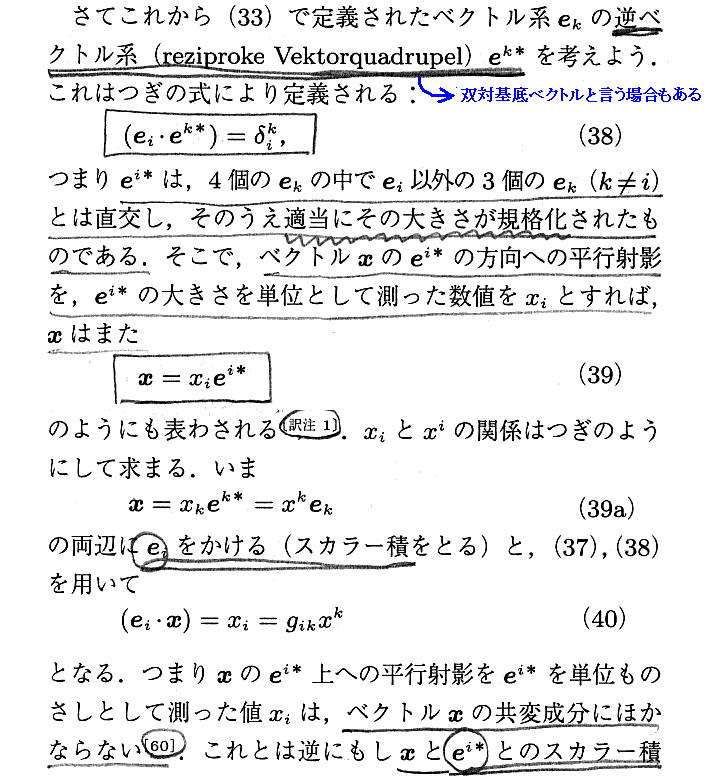 さてこれから (33) で定義されたベクトル系 eₖ の逆ベ
クトル系 (reziproke Vektorquadrupel) eᵏ* を考えよう.
これはつぎの式により定義される:
双対基底ベクトルと言う場合もある
(eᵢ·eᵏ*) = δᵢᵏ, (38)
つまり eⁱ* は, 4 個の eₖ の中で eᵢ 以外の 3 個の eₖ (k≠i)
とは直交し, そのうえ適当にその大きさが規格化されたも
のである. そこで, ベクトル x の eⁱ* の方向への平行射影
を, eⁱ* の大きさを単位として測った数値を xᵢ とすれば,
x はまた
x = xᵢeⁱ* (39)
のようにも表わされる[訳注 1]. xᵢ と xⁱ の関係はつぎのよう
にして求まる. いま
x = xₖeᵏ* = xᵏeₖ (39a)
の両辺に eᵢ をかける (スカラー積をとる) と, (37), (38)
を用いて
(eᵢ·x) = xᵢ = gᵢₖxᵏ (40)
となる. つまり x の eⁱ* 上への平行射影を eⁱ* を単位もの
さしとして測った値 xᵢ は, ベクトル x の共変成分にほか
ならない[60]. これとは逆にもし x と eⁱ* とのスカラー積